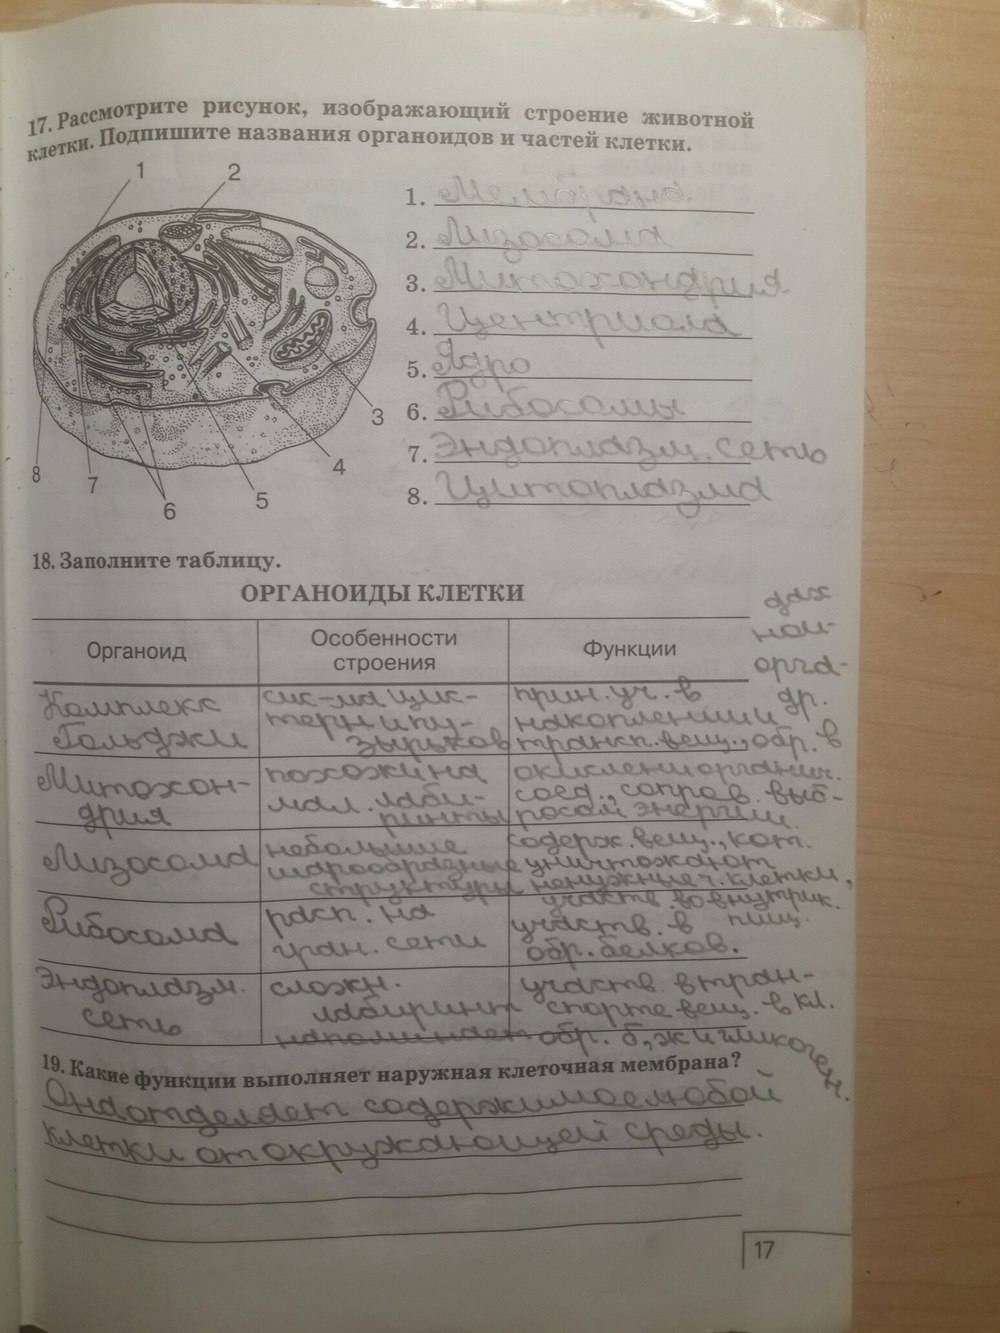 17. Рассмотрите рисунок, изображающий строение животной
клетки. Подпишите названия органоидов и частей клетки.
1
2
3
4
5
6
7
8
1. Мембрана
2. Лизосома
3. Митохондрия
4. Центриола
5. Ядро
6. Рибосомы
7. Эндоплазм. сеть
8. Цитоплазма
18. Заполните таблицу.
ОРГАНОИДЫ КЛЕТКИ
Органоид
Особенности
строения
Функции
Комплекс
Гольджи
сис-ма цис-
терн и пу-
зырьков
прин. уч. в
накоплении и
трансп. вещ., обр. в
др.
орга-
Митохон-
дрия
похожи на
мал. лаби-
ринты
окислени органич.
соед., сопров. выб-
росом энергии.
Лизосома
небольшие
шарообразные
структуры
содерж. вещ., кот.
уничтожают
ненужные ч. клетки,
участв. во внутрик.
пищ.
Рибосома
расп. на
гран. сети
участв. в
обр. белков.
Эндоплазм.
сеть
сложн.
лабиринт
напоминает
участв. в тран-
спорте вещ. в кл.
обр. б, ж и гликоген.
19. Какие функции выполняет наружная клеточная мембрана?
Она отделяет содержимое любой
клетки от окружающей среды.
17